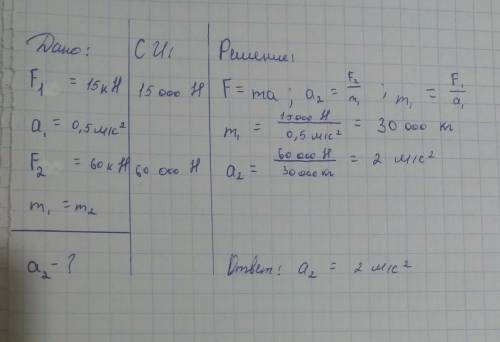 Дано:
F₁ = 15 кН
a₁ = 0,5 м/с²
F₂ = 60 кН
m₁ = m₂
a₂ - ?
СИ:
15 000 Н
60 000 Н
Решение:
F = ma ; a₂ = F₂/m₁ ; m₁ = F₁/a₁
m₁ = 15000 Н / 0,5 м/с² = 30 000 кг
a₂ = 60 000 Н / 30 000 кг = 2 м/с²
Ответ: a₂ = 2 м/с²